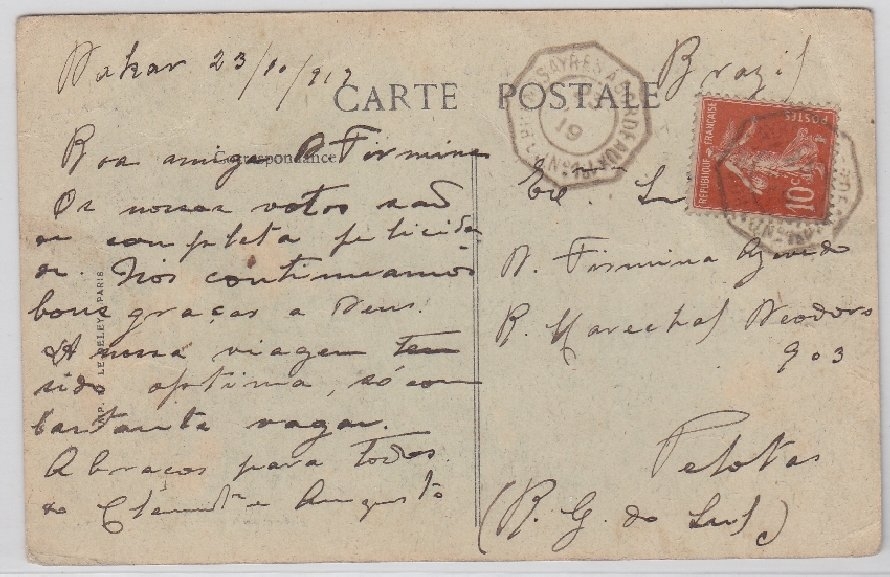 Dakar 23/10/917
Brazil
CARTE POSTALE
Correspondance
Boa amiga D. Firmina
Os nossos votos são
de completa felicida
de. Nós continuamos
bons graças a Deus.
A nossa viagem tem
sido optima, só com
bastante vagar.
Abraços para todos
do Clemente e Augusto
D. Firmina Azevedo
R. Marechal Deodoro
903
Pelotas
(R. G. do Sul)
RÉPUBLIQUE FRANÇAISE
POSTES
10c
19
LELEY. PARIS